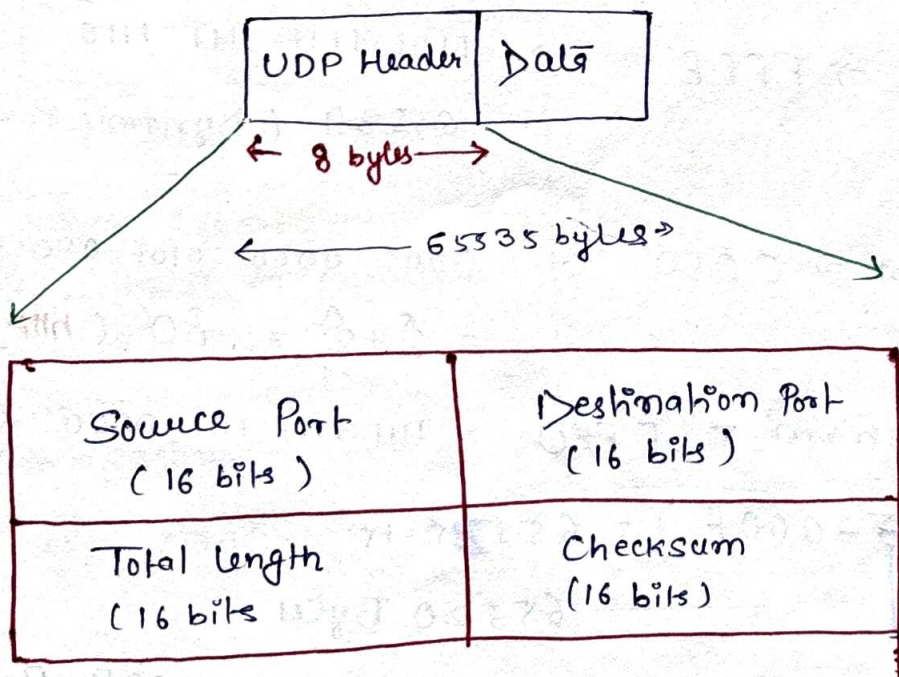 UDP Header Data
8 bytes
65535 bytes
Source Port
(16 bits)
Destination Port
(16 bits)
Total length
(16 bits
Checksum
(16 bits)